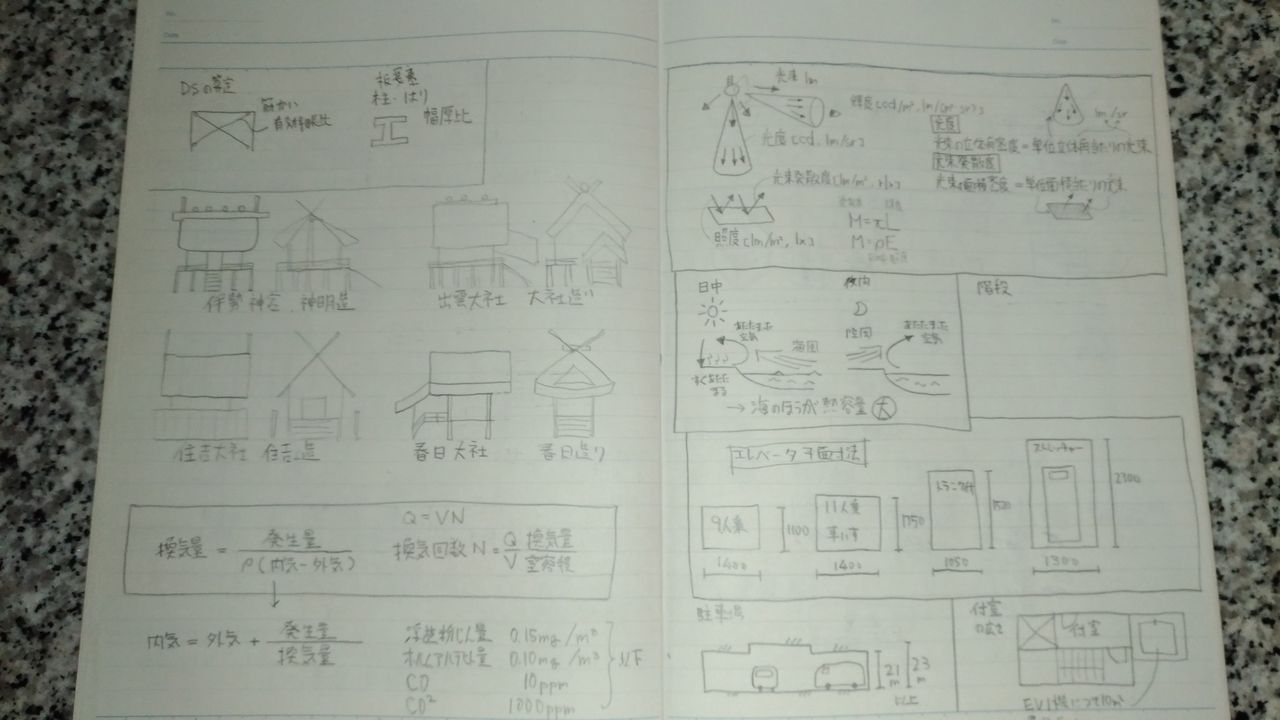 DSの算定
筋かい
有効細長比
板要素
柱・はり
幅厚比
伊勢神宮 神明造
出雲大社 大社造り
住吉大社 住吉造
春日大社 春日造り
Q=VN
換気量 = 発生量 / ρ(内気-外気)
換気回数 N = Q/V 換気量/室容積
内気 = 外気 + 発生量/換気量
浮遊粉じん量 0.15mg/m³
ホルムアルデヒド量 0.10mg/m³
CO 10ppm
CO² 1000ppm
以下
光束 lm
輝度[cd/m², lm/(m²·sr)]
光度[cd, lm/sr]
光束発散度[lm/m², rlx]
照度[lm/m², lx]
M=πL
M=ρE
lm/sr
光度
光束の立体角密度=単位立体角当たりの光束
光束発散度
光束の面積密度=単位面積当たりの光束
日中
夜内
あたたまった空気
海風
すぐあたたまる
陸風
あたたまった空気
→海のほうが熱容量大
階段
エレベータ平面寸法
9人乗
1100
1400
11人乗
車いす
1400
トランク付
1050
ストレッチャー
2300
1300
駐車場
2.1m
2.3m
以上
付室の広さ
付室
EV1機につて10m²